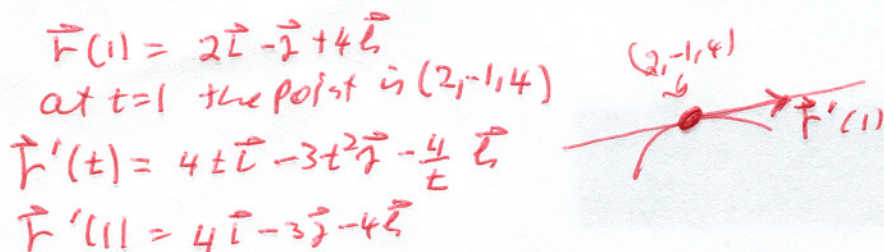 r⃗(1) = 2i⃗ - j⃗ + 4k⃗
at t=1 the point is (2,-1,4)
r⃗'(t) = 4t i⃗ - 3t² j⃗ - 4/t k⃗
r⃗'(1) = 4i⃗ - 3j⃗ - 4k⃗
(2,-1,4)
r⃗'(1)